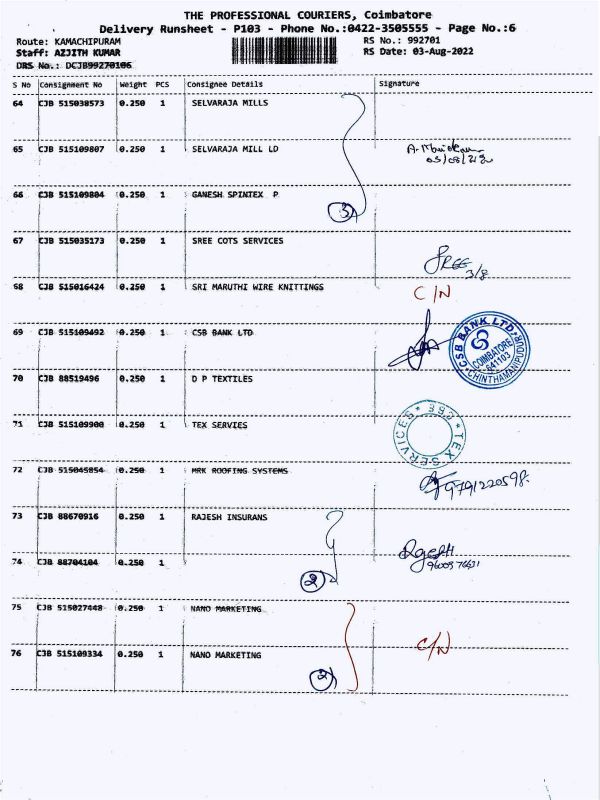 THE PROFESSIONAL COURIERS, Coimbatore
Delivery Runsheet - P103 - Phone No.:0422-3505555 - Page No.:6
Route: KAMACHIPURAM RS No.: 992701
Staff: AZJITH KUMAR RS Date: 03-Aug-2022
DRS No.: DCJB99270106
S No Consignment No Weight PCS Consignee Details Signature
64 CJB 515038573 0.250 1 SELVARAJA MILLS
65 CJB 515109807 0.250 1 SELVARAJA MILL LD
03/08/22
66 CJB 515109804 0.250 1 GANESH SPINTEX P
3
67 CJB 515035173 0.250 1 SREE COTS SERVICES
SREE
3/8
68 CJB 515016424 0.250 1 SRI MARUTHI WIRE KNITTINGS C/N
69 CJB 515109492 0.250 1 CSB BANK LTD
CSB BANK LTD.
COIMBATORE
641103
CHINTHAMANIPUDUR
70 CJB 88519496 0.250 1 D P TEXTILES
71 CJB 515109900 0.250 1 TEX SERVIES
TEX SERVICES
72 CJB 515045854 0.250 1 MRK ROOFING SYSTEMS
9791220598
73 CJB 88670916 0.250 1 RAJESH INSURANS
74 CJB 88704104 0.250 1
2
75 CJB 515027448 0.250 1 NANO MARKETING
C/N
76 CJB 515109334 0.250 1 NANO MARKETING
2